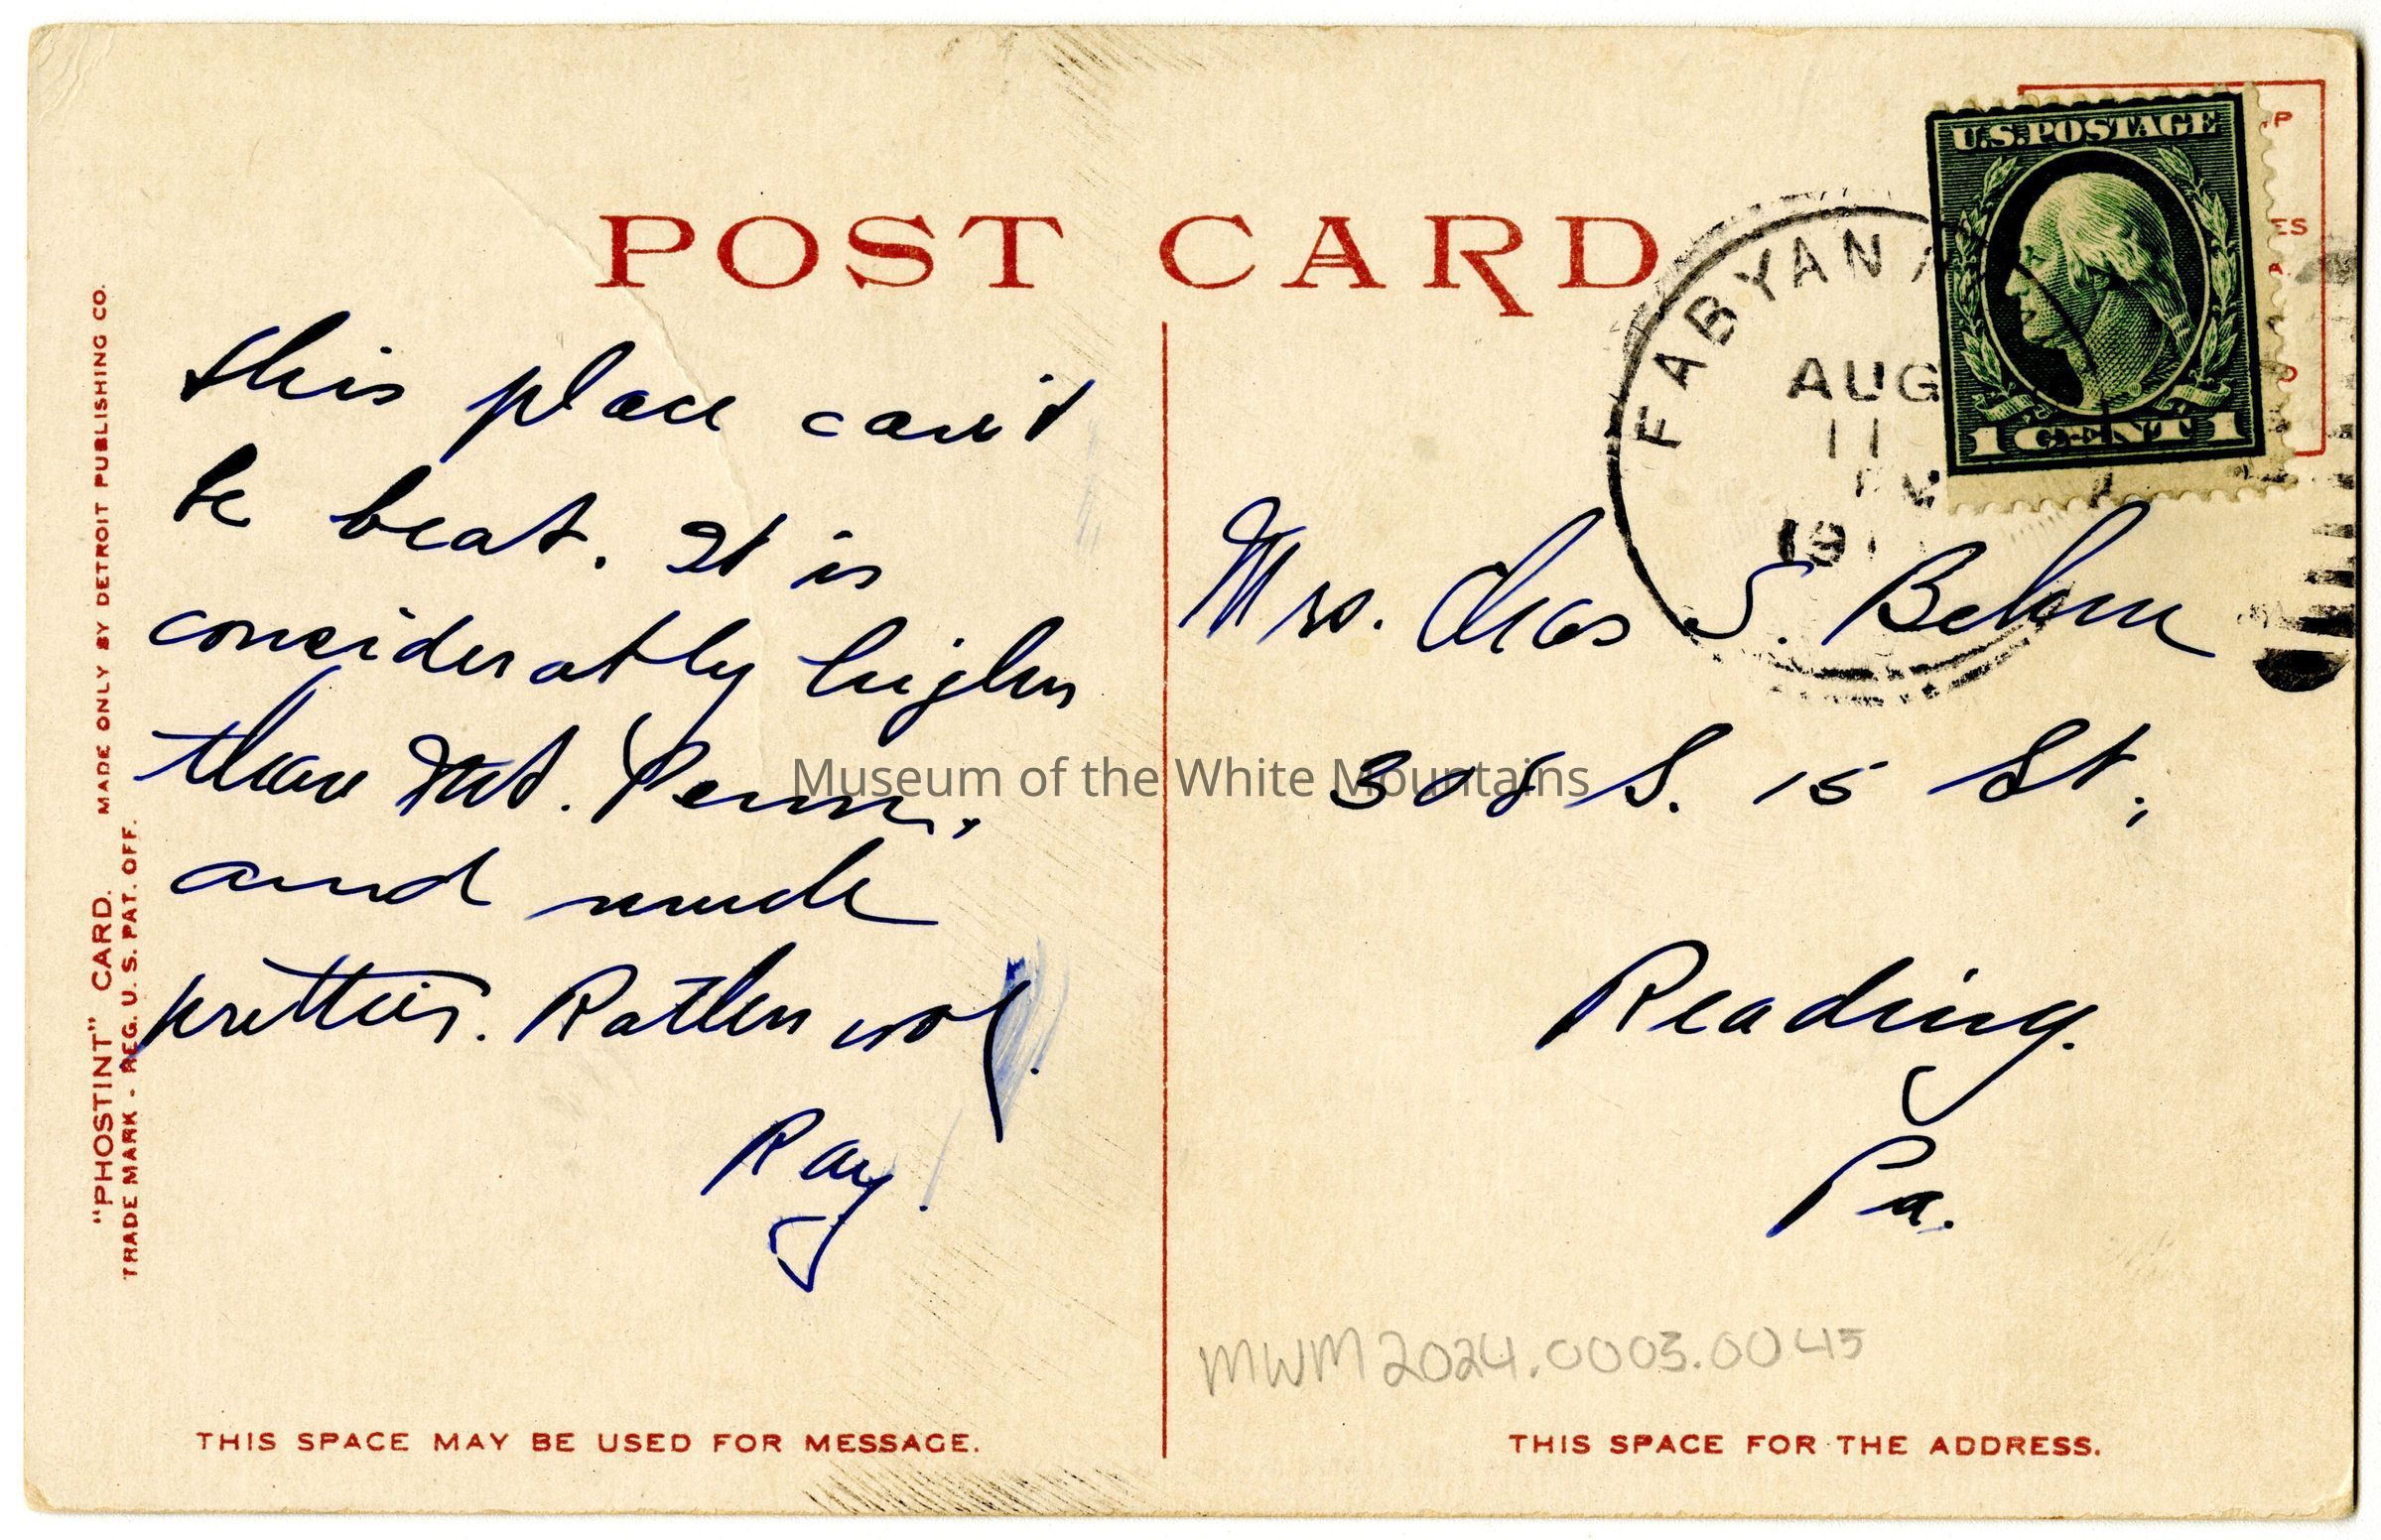 POST CARD
U.S. POSTAGE
1 CENT 1
FABYAN
AUG
11
19
This place can't
be beat. It is
considerably higher
than Mt. Penn,
and much
prettier. Rather cool.
Ray.
Mrs. Chas S. Behm
308 S. 15 St.,
Reading.
Pa.
"PHOSTINT" CARD. MADE ONLY BY DETROIT PUBLISHING CO.
TRADE MARK - REG. U. S. PAT. OFF.
Museum of the White Mountains
MWM2024.0003.0045
THIS SPACE MAY BE USED FOR MESSAGE.
THIS SPACE FOR THE ADDRESS.